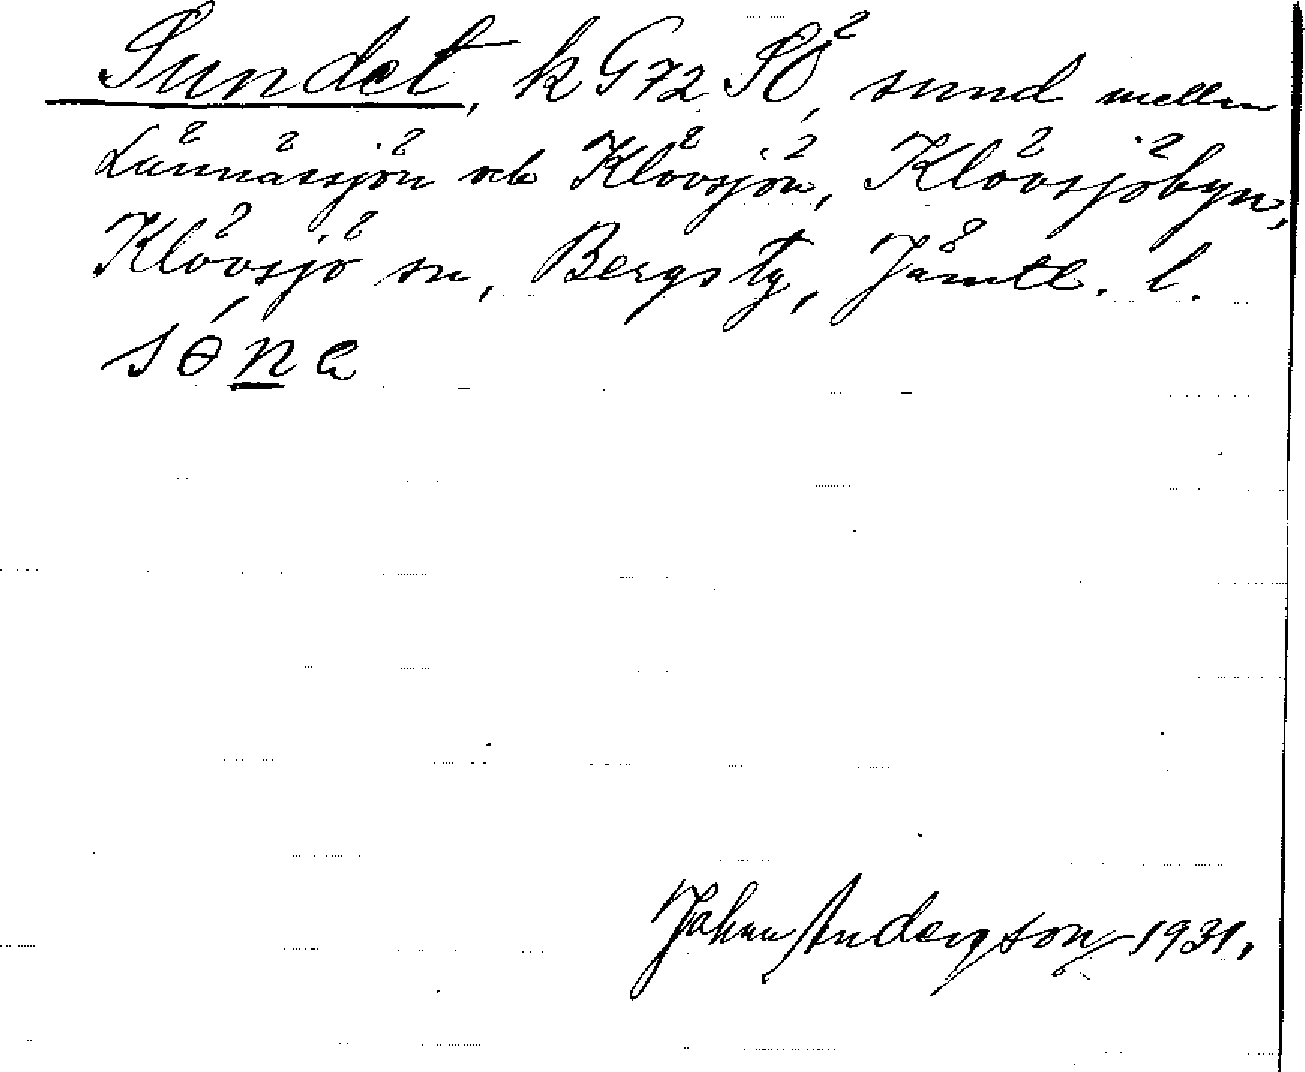 Sundet, k G 72 SÖ, sund mellan
Lännässjön och Klövsjön, Klövsjöbyn,
Klövsjö sn, Bergs tg, Jämtl. l.
sɵ́na
Johan Anderson 1931.